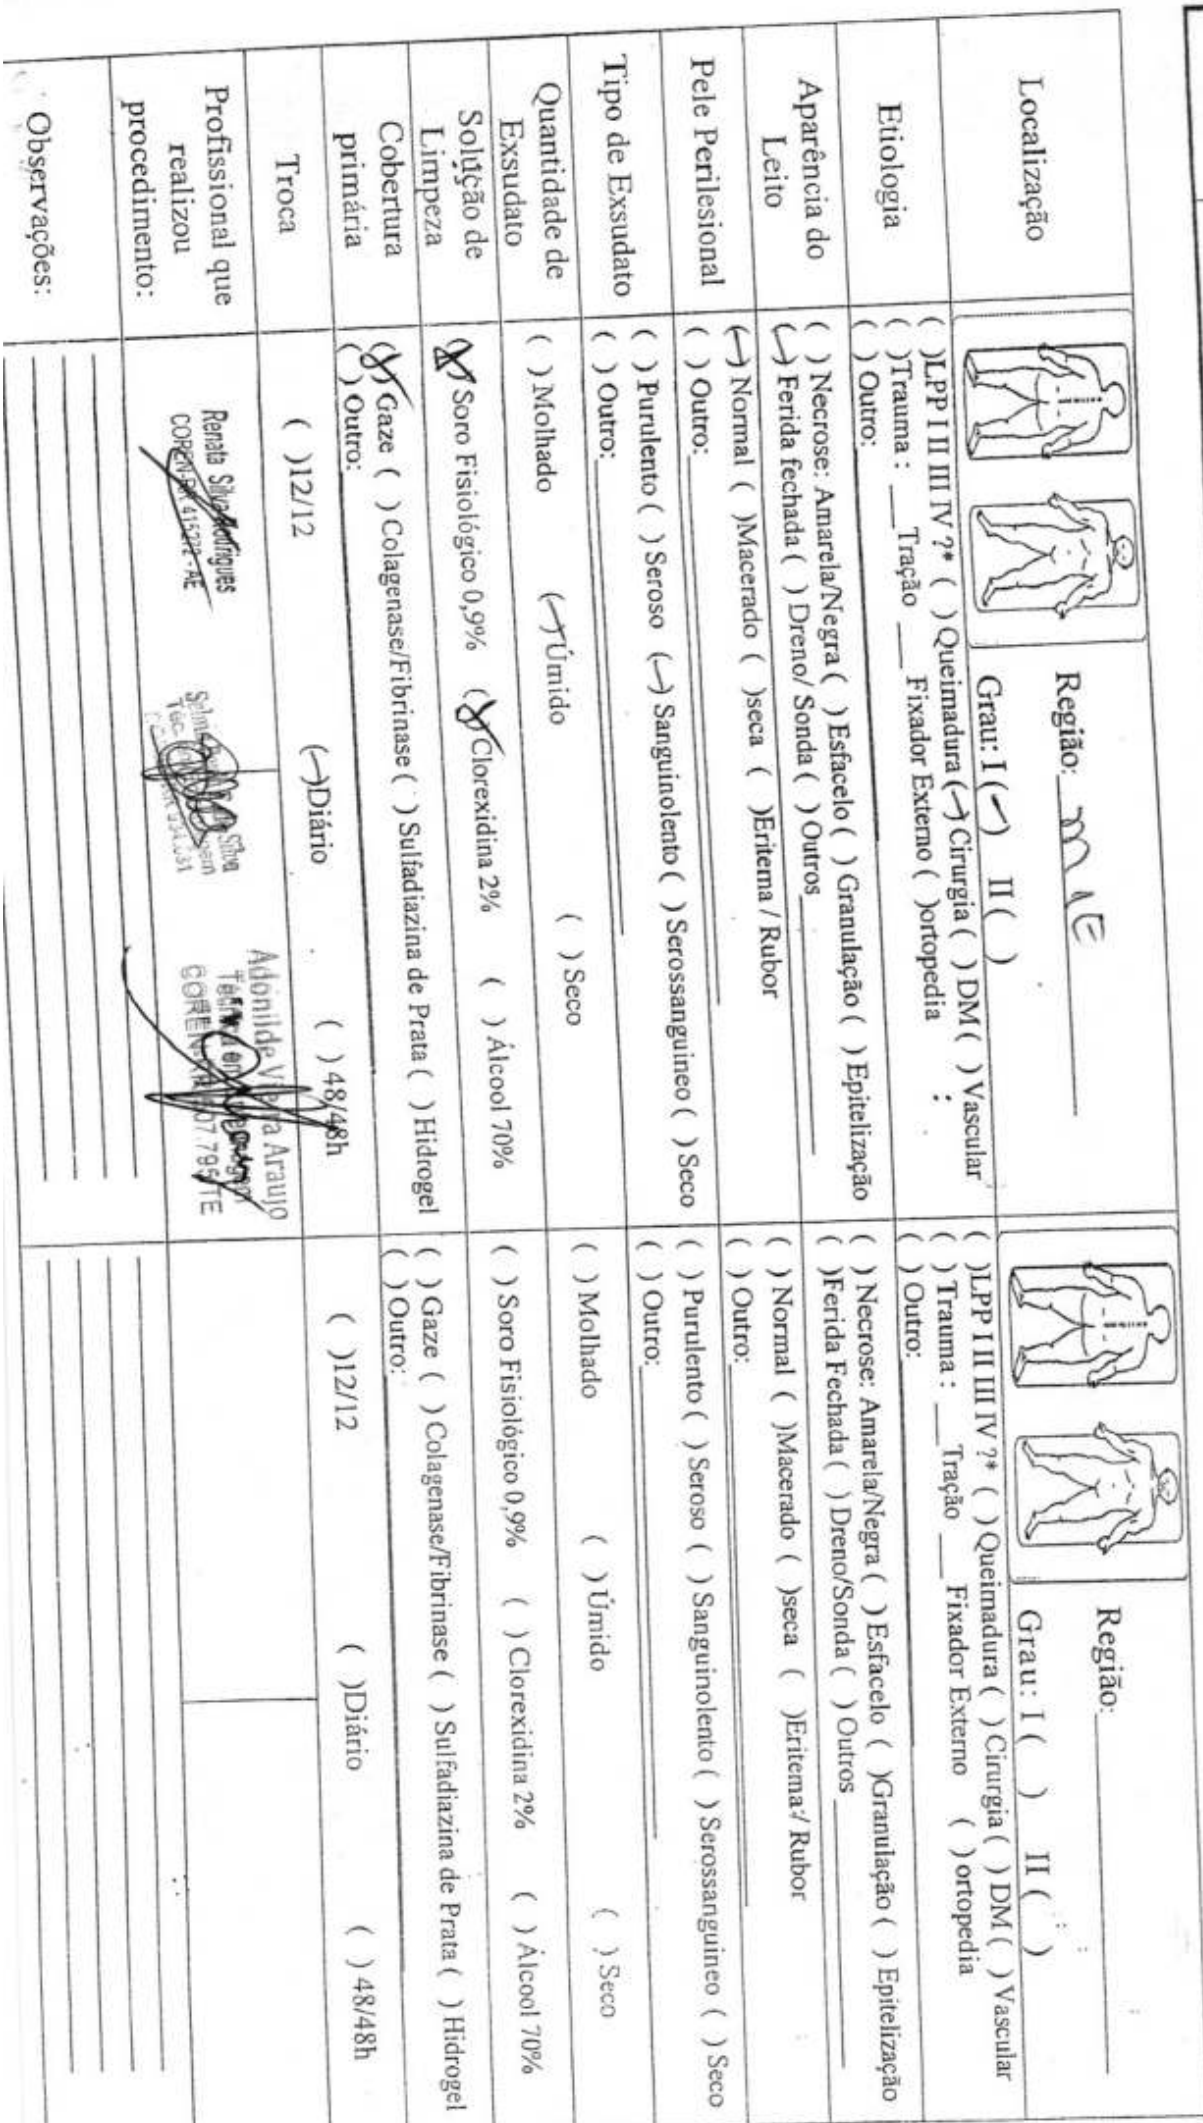 Localização
Região: MIE
Grau: I (—) II ( )
Região:
Grau: I ( ) II ( )
Etiologia
( )LPP I II III IV ?* ( ) Queimadura (—) Cirurgia ( ) DM ( ) Vascular
( )Trauma : ___ Tração ___ Fixador Externo ( )ortopedia
( ) Outro:
( )LPP I II III IV ?* ( ) Queimadura ( ) Cirurgia ( ) DM ( ) Vascular
( ) Trauma : ___ Tração ___ Fixador Externo ( ) ortopedia
( ) Outro:
Aparência do
Leito
( ) Necrose: Amarela/Negra ( ) Esfacelo ( ) Granulação ( ) Epitelização
(—) Ferida fechada ( ) Dreno/ Sonda ( ) Outros
( ) Necrose: Amarela/Negra ( ) Esfacelo ( )Granulação ( ) Epitelização
( )Ferida Fechada ( ) Dreno/Sonda ( ) Outros
Pele Perilesional
(—) Normal ( )Macerado ( )seca ( )Eritema / Rubor
( ) Outro:
( ) Normal ( )Macerado ( )seca ( )Eritema / Rubor
( ) Outro:
Tipo de Exsudato
( ) Purulento ( ) Seroso (—) Sanguinolento ( ) Serossanguineo ( ) Seco
( ) Outro:
( ) Purulento ( ) Seroso ( ) Sanguinolento ( ) Serossanguineo ( ) Seco
( ) Outro:
Quantidade de
Exsudato
( ) Molhado (—) Úmido ( ) Seco
( ) Molhado ( ) Úmido ( ) Seco
Solução de
Limpeza
(X) Soro Fisiológico 0,9% (X) Clorexidina 2% ( ) Álcool 70%
( ) Soro Fisiológico 0,9% ( ) Clorexidina 2% ( ) Álcool 70%
Cobertura
primária
(X) Gaze ( ) Colagenase/Fibrinase ( ) Sulfadiazina de Prata ( ) Hidrogel
( ) Outro:
( ) Gaze ( ) Colagenase/Fibrinase ( ) Sulfadiazina de Prata ( ) Hidrogel
( ) Outro:
Troca
( )12/12 (—)Diário ( ) 48/48h
( )12/12 ( )Diário ( ) 48/48h
Profissional que
realizou
procedimento:
Renata Silva Rodrigues
COREN-RR 415272 - AE
Silva
Adonilde Vieira Araujo
Observações: